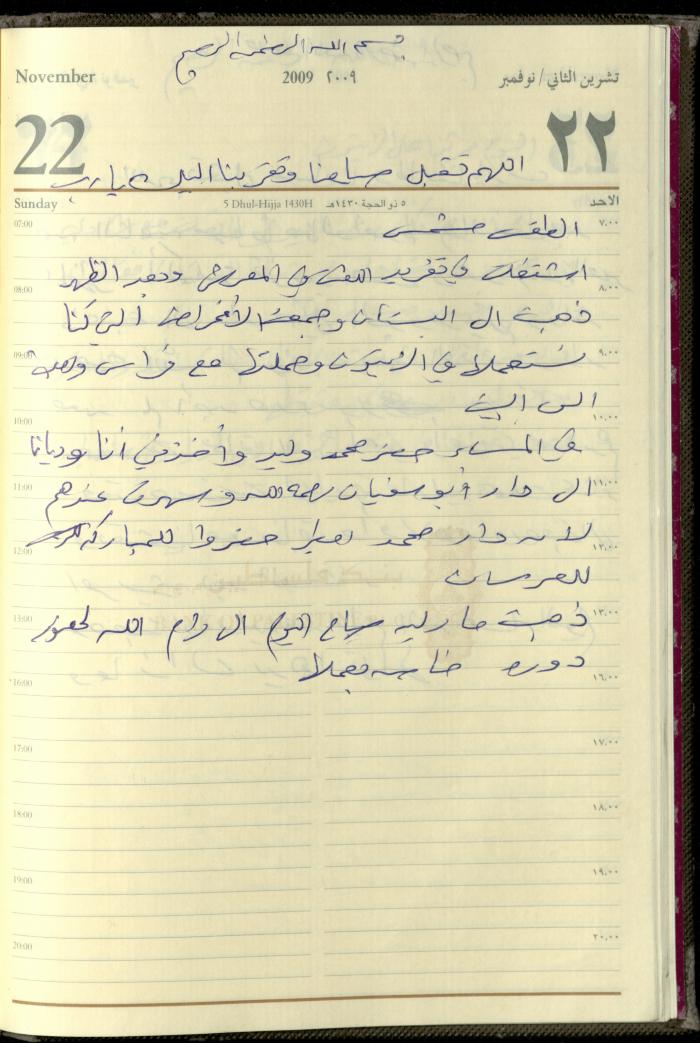 بسم الله الرحمن الرحيم
November 2009 ٢٠٠٩ تشرين الثاني/نوفمبر
22 ٢٢
اللهم تقبل صيامنا وتقربنا اليك يا رب
Sunday 5 Dhul-Hijja 1430H ٥ ذو الحجة ١٤٣٠هـ الاحد
07:00 ٧.٠٠
الطقس مشمس
اشتغلت في تفريد في المعرش وبعد الظهر
08:00 ٨.٠٠
ذهبت الى البستان وجمعت الأغراض التي كنا
09:00 ٩.٠٠
نستعملها في الزيتون وحملتها مع فراس
الى البيت
10:00 ١٠.٠٠
في المساء حضر محمد وليد وأخذني أنا وديانا
11:00 ١١.٠٠
الى دار أبو سفيان رحمه الله وسهرت عندهم
لانه دار محمد حضروا للمباركة
12:00 ١٢.٠٠
للعرسان
13:00 ١٣.٠٠
ذهبت صباح اليوم الى رام الله لحضور
دورة خاصة بعملها
16:00 ١٦.٠٠
17:00 ١٧.٠٠
18:00 ١٨.٠٠
19:00 ١٩.٠٠
20:00 ٢٠.٠٠